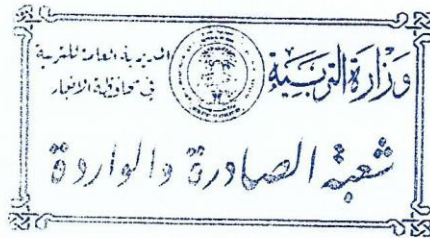 وزارة التربية
المديرية العامة للتربية
في محافظة الانبار
شعبة الصادرة والواردة